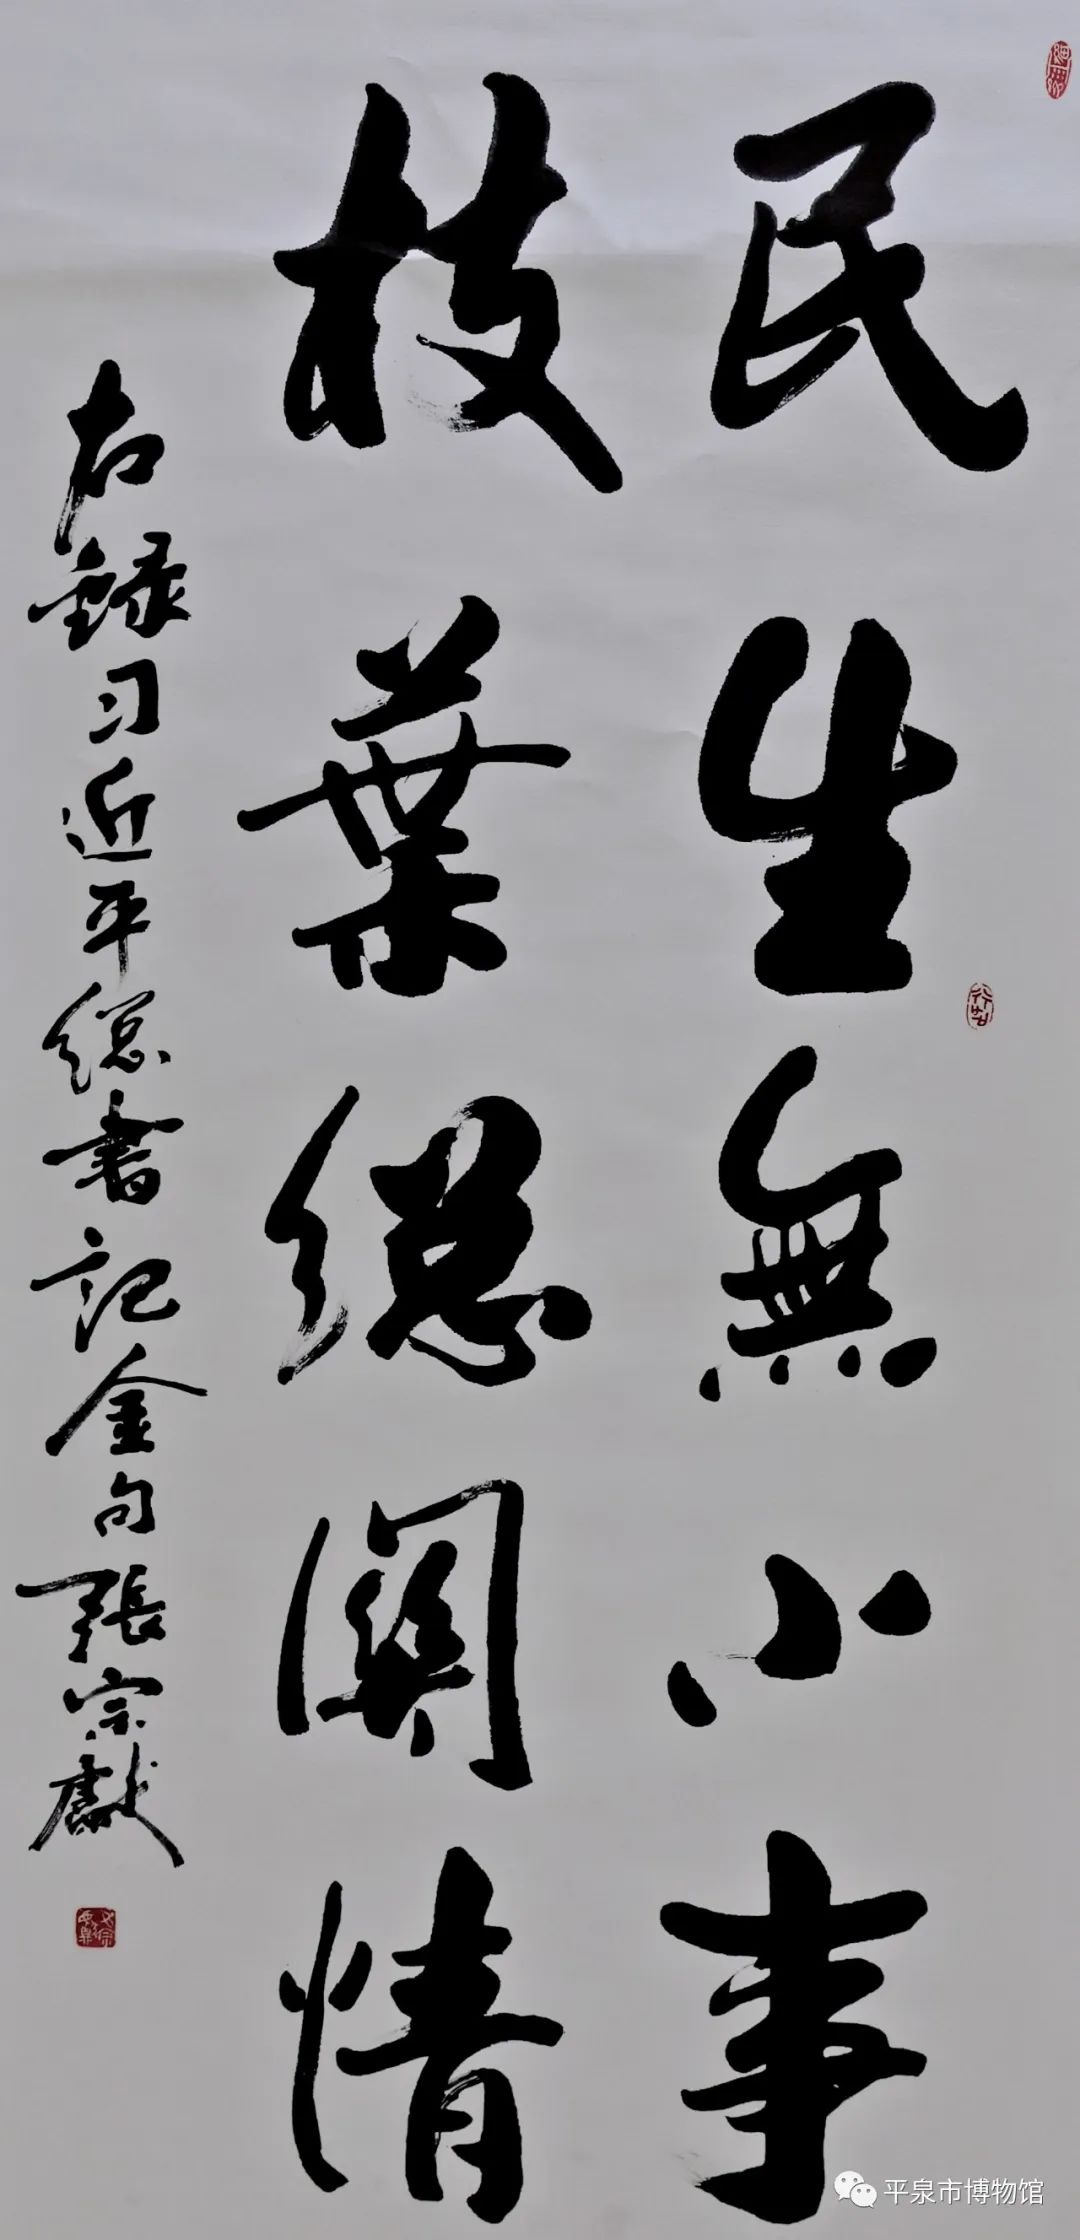 民生無小事
枝葉總關情
右録习近平総書記金句張宗獻
平泉市博物馆